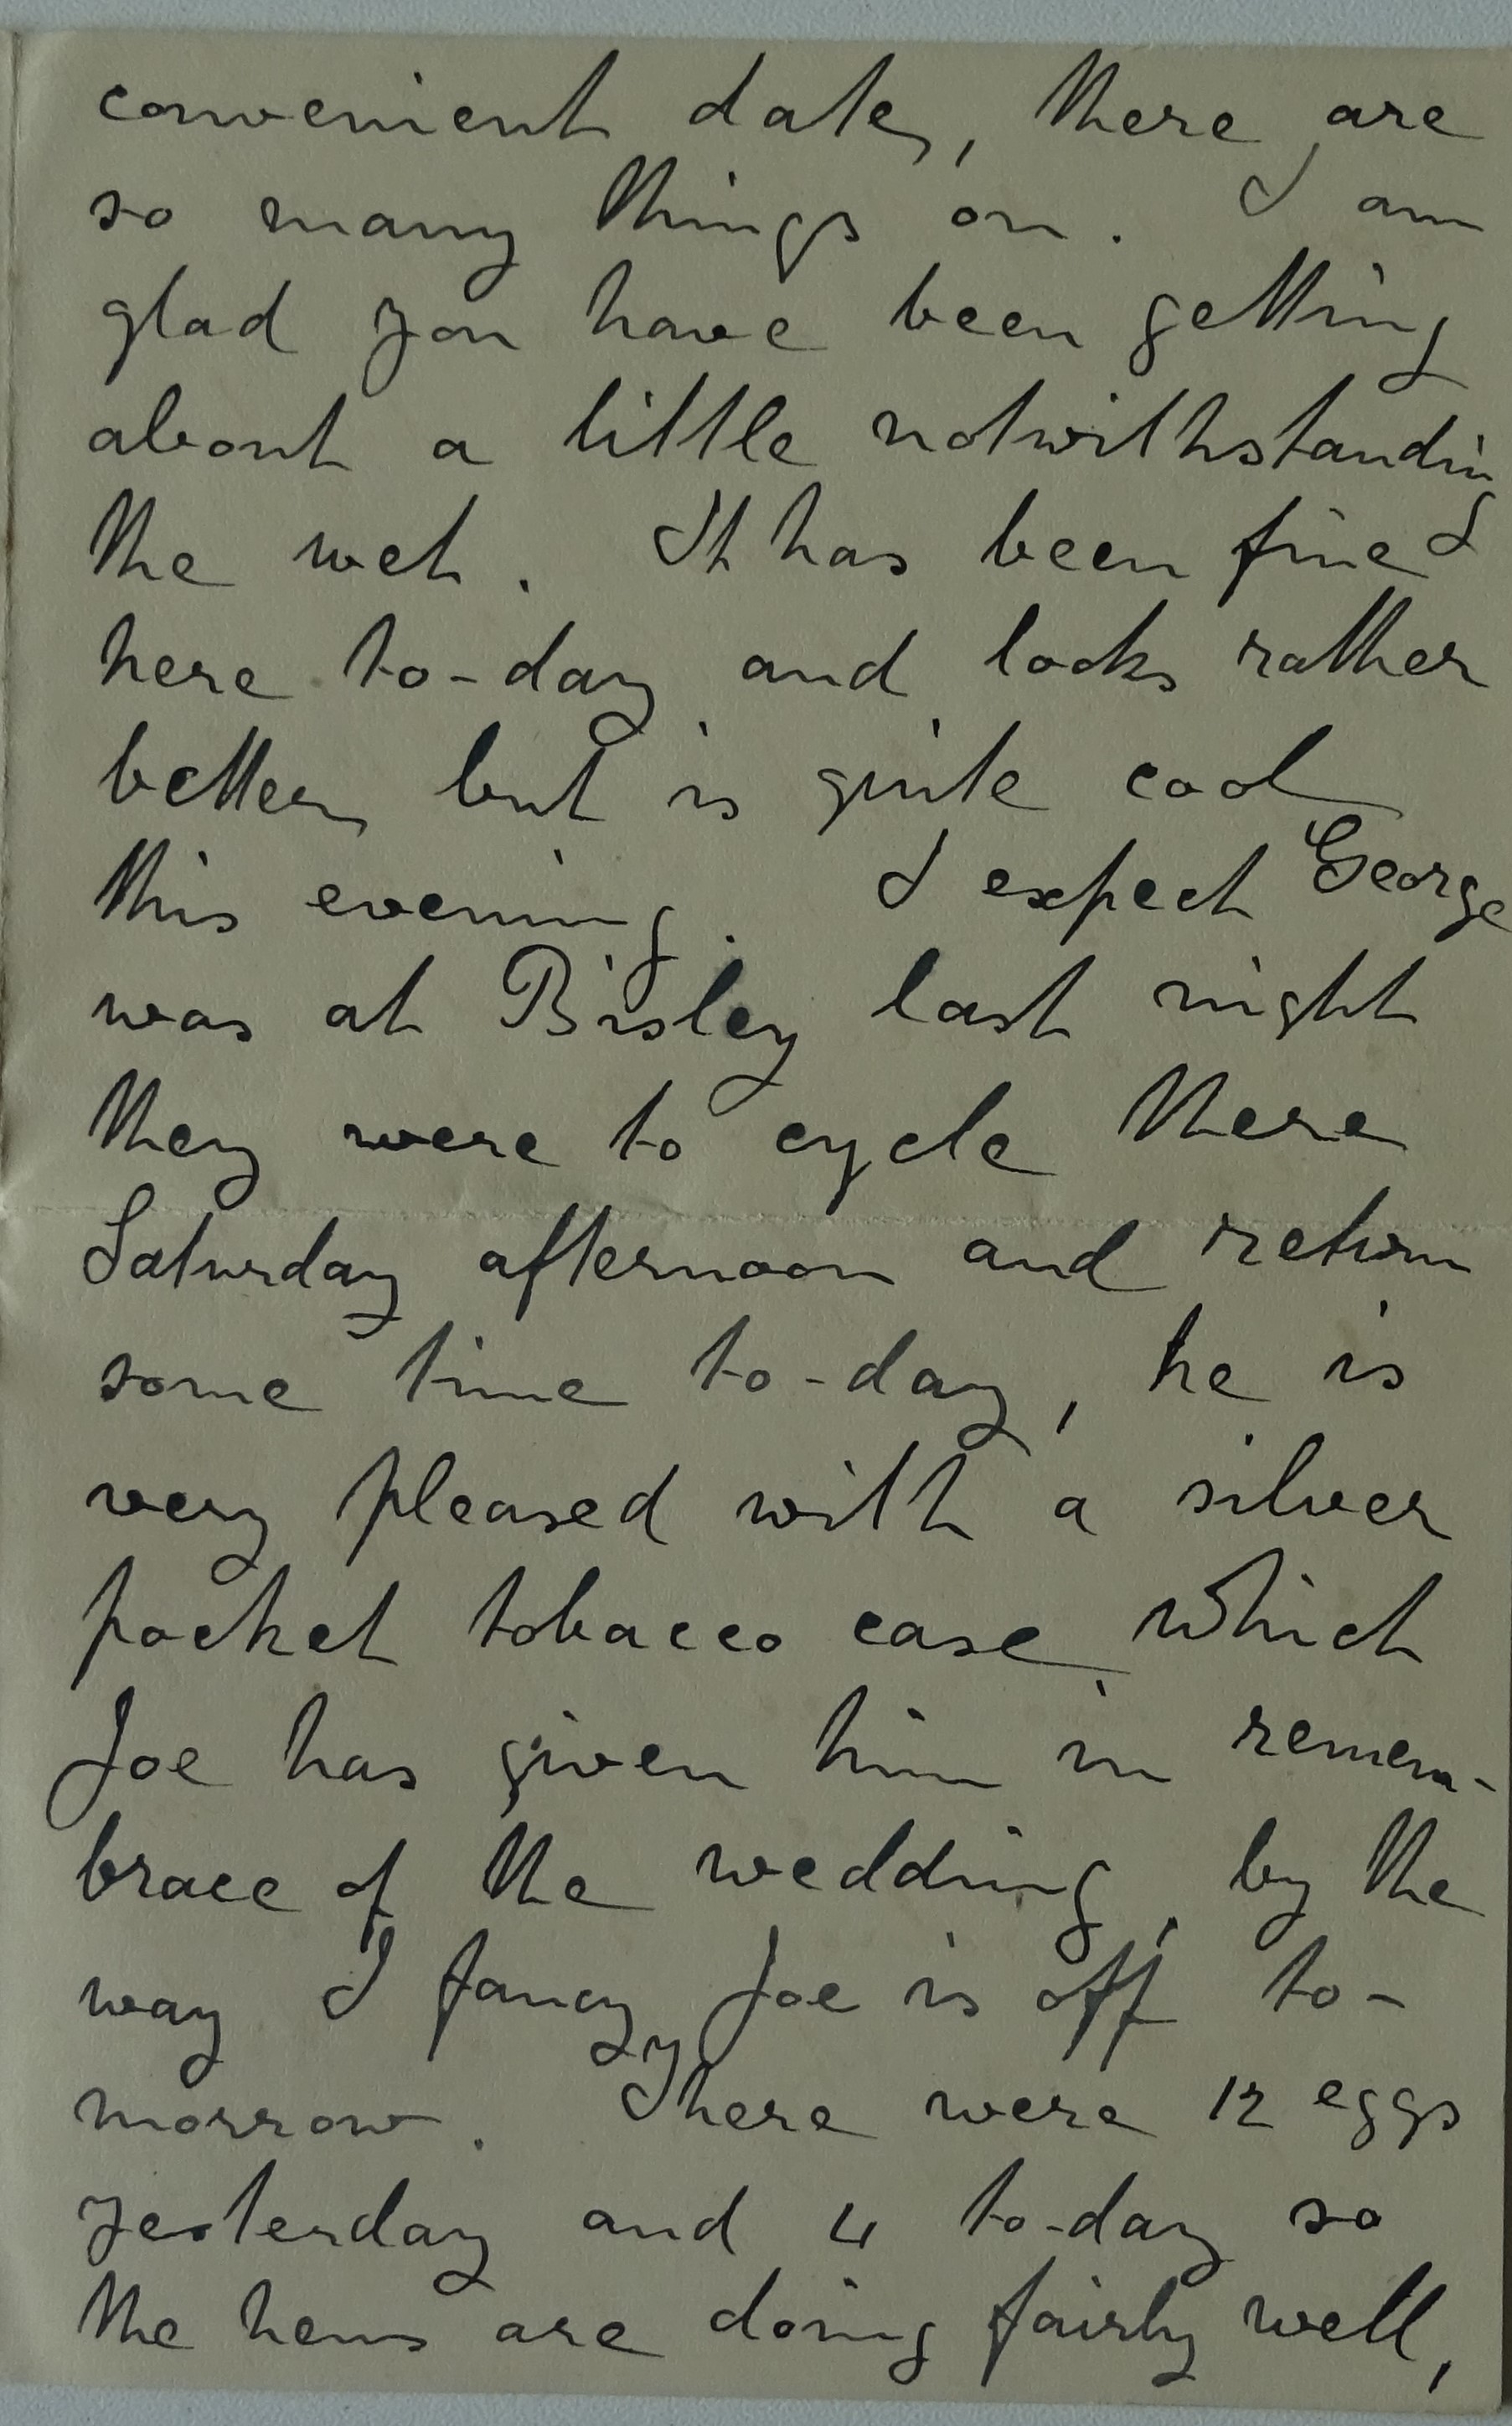 convenient date, there are
so many things on. I am
glad you have been getting
about a little notwithstanding
the wet. It has been fine
here to-day and looks rather
better, but is quite cool
this evening. I expect George
was at Bisley last night
they were to cycle there
Saturday afternoon and return
some time to-day, he is
very pleased with a silver
pocket tobacco case which
Joe has given him in remem-
brace of the wedding, by the
way I fancy Joe is off to-
morrow. There were 12 eggs
yesterday and 4 to-day so
the hens are doing fairly well,